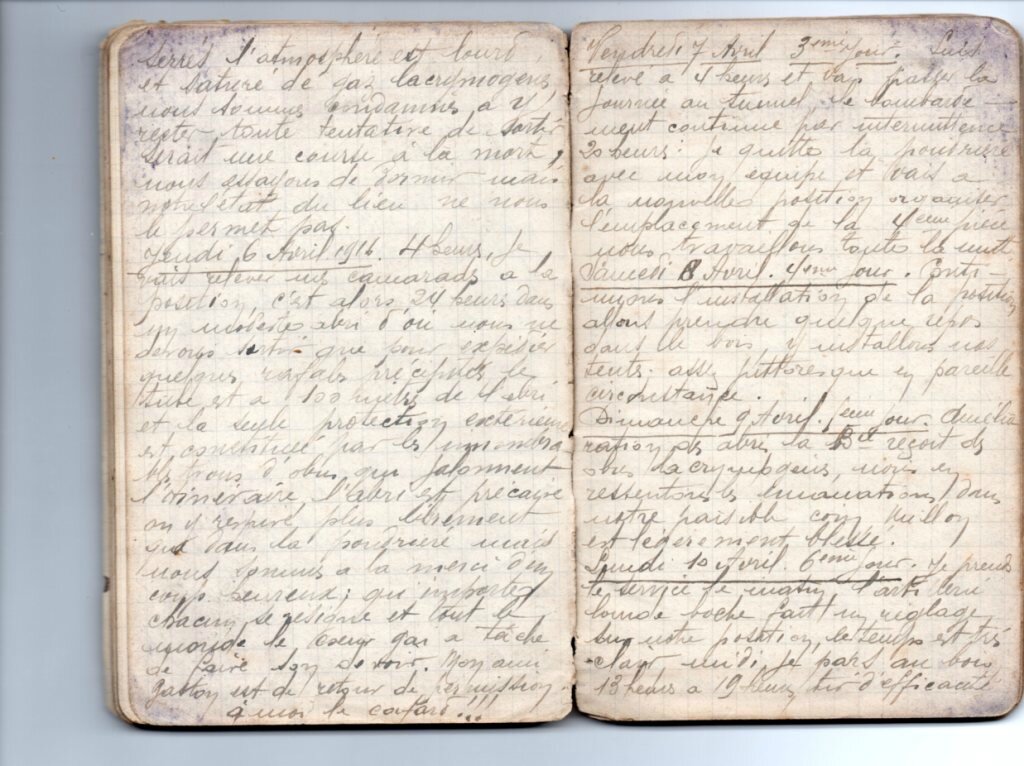 serrés l'atmosphère est lourd,
et saturé de gaz lacrymogens,
nous sommes condamnés a y
rester toute tentative de sortir
serait une course à la mort,
nous essayons de dormir mais
notre état du lieu ne nous
le permet pas.
Jeudi 6 Avril 1916. 4 heures, Je
vais relever mes camarads a la
position, c'est alors 24 heures dans
un modeste abri d'où nous ne
devons sortir que pour expédier
quelques rafals précipités, je
est a 100 mètres de l'abri
et la seule protection extérieure
est constituée par les innombra
bles trous d'obus qui jalonnent
l'itinéraire, l'abri est précaire
on y respire plus librement
que dans la poudrière mais
nous sommes a la merci d'un
coup heureux; qui importe,
chacun se résigne et tout le
monde le coeur gai a tâche
de faire son devoir. Mon ami
Gaston est de retour de permission
à moi le cafard...!!!
Vendredi 7 Avril 3eme jour. Suis
relevé a 4 heurs et vais passer la
journée au tunnel, le bombarde-
ment continue par intermittence
20 heurs: Je quitte la poudrière
avec mon équipe et vais a
la nouvelles position organiser
l'emplacment de la 4eme pièce
nous travaillons toute la nuit
Samedi 8 Avril. 4eme jour. Conti-
nuons l'installation de la position
allons prendre quelque repos
dans le bois, y installons nos
tents. assé pittoresque en pareille
circonstance.
Dimanche 9 Avril. 5eme jour. Amélio
ration des abris la Bie reçoit des
obus lacrymogènes, nous en
ressentons les émanations dans
notre paisible coin
est légèrement blessé.
Lundi 10 Avril. 6eme jour. Je prends
le service le matin l'artillerie
lourde boche fait un réglage
sur notre position, le temps est très
clair midi, Je pars au bois
13 heurs a 19 heurs, tir d'efficacité